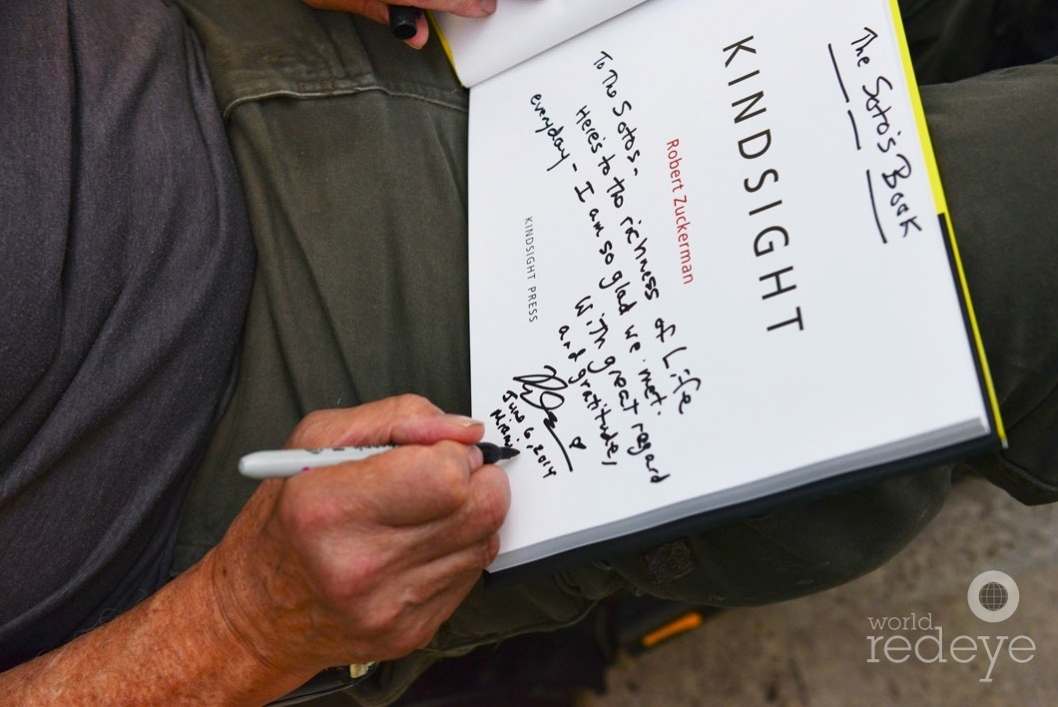 The Soto's Book
KINDSIGHT
Robert Zuckerman
To The Sotos-
Here's to the richness of Life
everyday - I am so glad we met.
With great regard
and gratitude,
June 6, 2014
KINDSIGHT PRESS
world
redeye